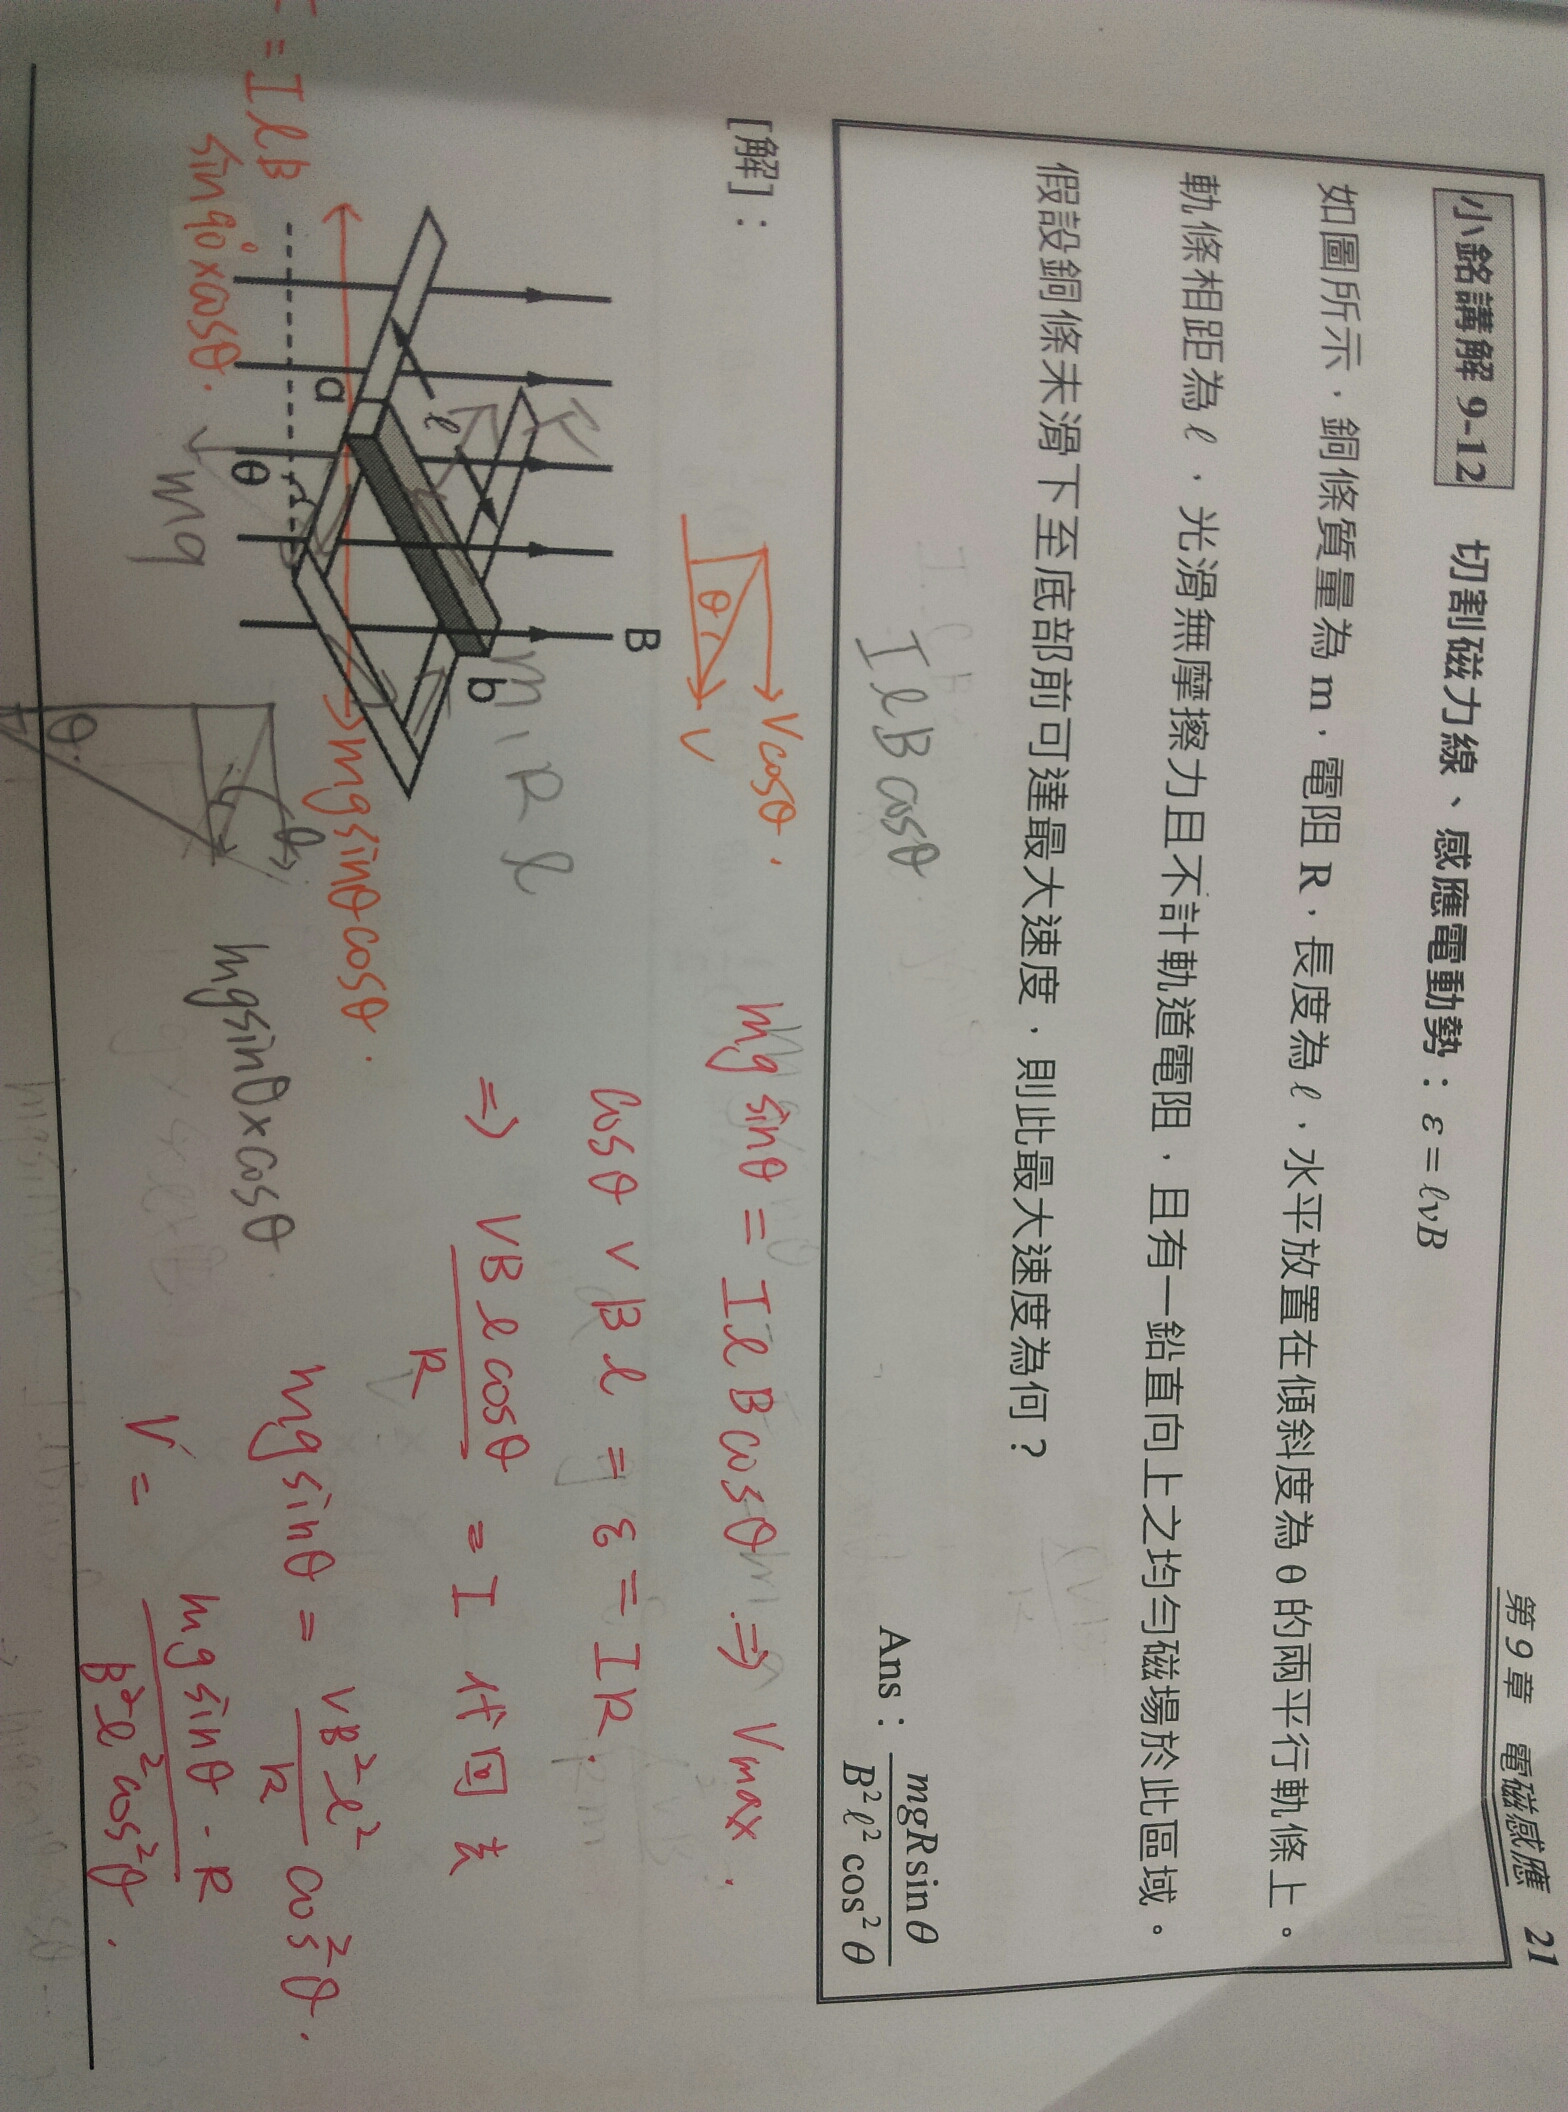 第 9 章 電磁感應 21
小銘講解 9-12 切割磁力線、感應電動勢：ε = ℓvB
如圖所示，銅條質量為 m，電阻 R，長度為 ℓ，水平放置在傾斜度為 θ 的兩平行軌條上。
軌條相距為 ℓ，光滑無摩擦力且不計軌道電阻，且有一鉛直向上之均勻磁場於此區域。
假設銅條未滑下至底部前可達最大速度，則此最大速度為何？
Ans：mgR sinθ / B²ℓ² cos²θ
IℓB cosθ
[解]：
θ
Vcosθ.
V
mg sinθ = IℓB cosθ ⇒ Vmax.
cosθ v B ℓ = ε = IR.
⇒ VBℓcosθ / R = I 代回去
mg sinθ = VB²ℓ² / R cos²θ.
V = mg sinθ · R / B²ℓ² cos²θ.
B
b
a
ℓ
θ
m, R ℓ
mg
= IℓB
sin90° × cosθ.
mg sinθ cosθ.
θ
θ
mg sinθ × cosθ